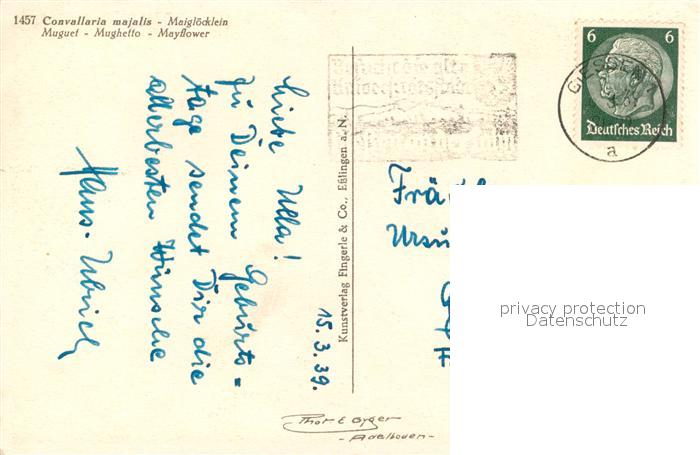 1457 Convallaria majalis - Maiglöcklein
Muguet - Mughetto - Mayflower
15.3.39.
Liebe Ulla!
Zu Deinem Geburts=
tage sendet Dir die
allerbesten Wünsche
Hans-Ulrich
Kunstverlag Fingerle & Co., Eßlingen a. N.
Thor E Gyger
- Adelboden -
6 6
Deutsches Reich
GIESSEN
a
Frä
Ursu
privacy protection
Datenschutz